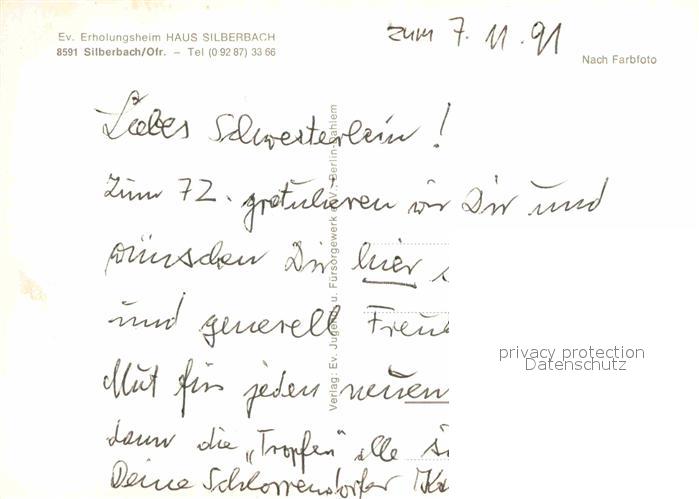 Ev. Erholungsheim HAUS SILBERBACH
8591 Silberbach/Ofr. – Tel (0 92 87) 33 66
zum 7. 11. 91
Nach Farbfoto
Liebes Schwesterlein!
Zum 72. gratulieren wir Dir und
wünschen Dir hier
und generell
Mut für jeden neuen
dann die „Tropfen" alle
Deine
Verlag: Ev. Jugend- u. Fürsorgewerk e.V., Berlin-Dahlem
privacy protection
Datenschutz